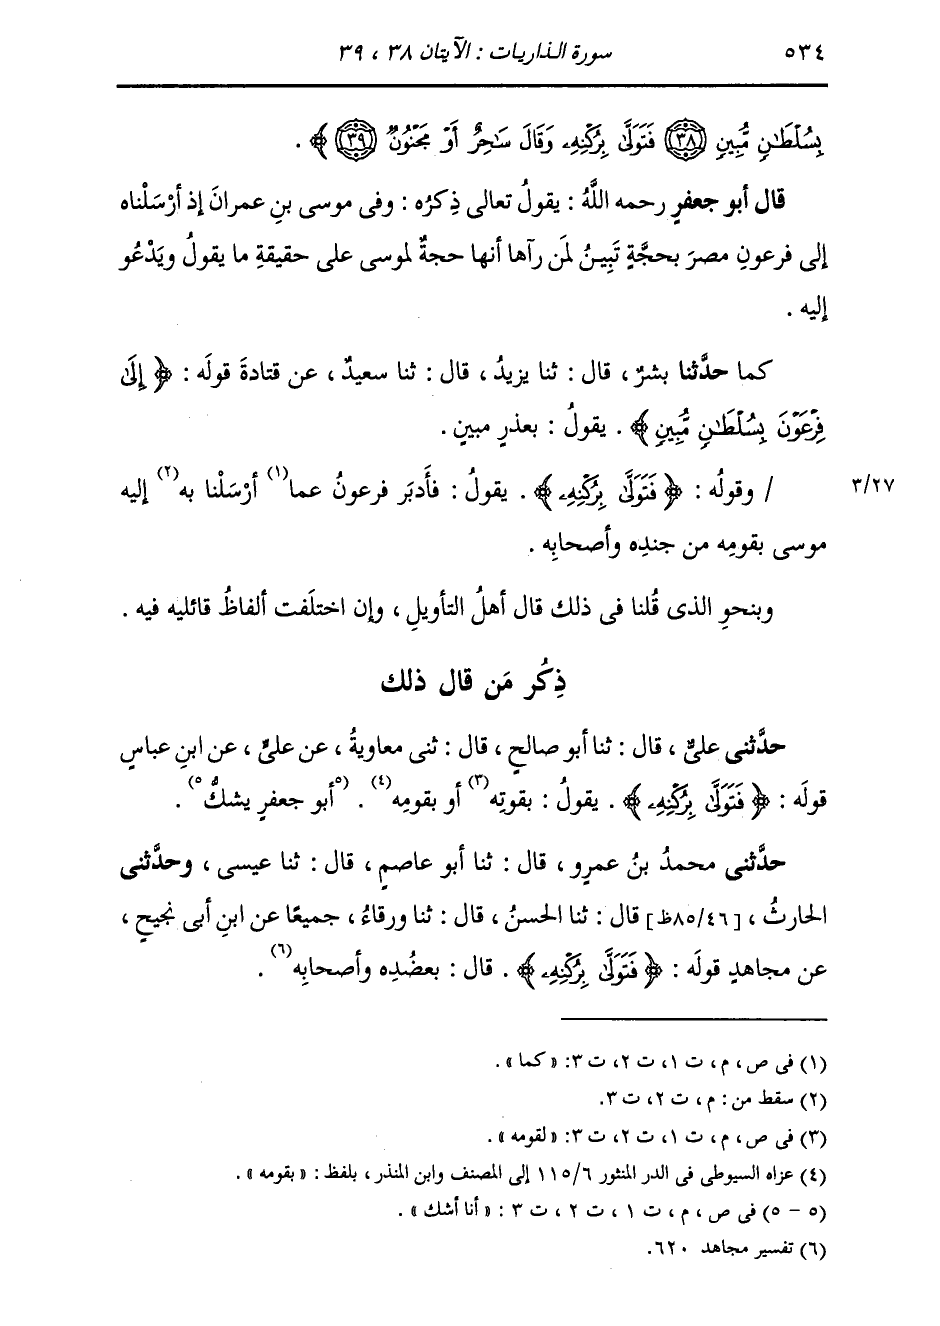 ٥٣٤ سورة الذاريات : الآيتان ٣٨ ، ٣٩
بِسُلْطَٰنٍ مُّبِينٍ ﴿٣٨﴾ فَتَوَلَّىٰ بِرُكْنِهِۦ وَقَالَ سَٰحِرٌ أَوْ مَجْنُونٌ ﴿٣٩﴾ ﴾ .
قال أبو جعفرٍ رحمه اللَّهُ : يقولُ تعالى ذِكرُه : وفى موسى بنِ عمرانَ إذ أرْسَلْناه
إلى فرعونِ مصرَ بحجَّةٍ تَبِينُ لمَن رآها أنها حجةٌ لموسى على حقيقةِ ما يقولُ ويَدْعُو
إليه .
كما حدَّثنا بشرٌ ، قال : ثنا يزيدُ ، قال : ثنا سعيدٌ ، عن قتادةَ قولَه : ﴿ إِلَىٰ
فِرْعَوْنَ بِسُلْطَٰنٍ مُّبِينٍ ﴾ . يقولُ : بعذرٍ مبينٍ .
٣/٢٧ / وقولُه : ﴿ فَتَوَلَّىٰ بِرُكْنِهِۦ ﴾ . يقولُ : فأَدبَر فرعونُ عما(١) أرْسَلْنا به(٢) إليه
موسى بقومِه من جندِه وأصحابِه .
وبنحوِ الذى قُلنا فى ذلك قال أهلُ التأويلِ ، وإن اختلَفت ألفاظُ قائليه فيه .
ذِكُر مَن قال ذلك
حدَّثنى علىٌّ ، قال : ثنا أبو صالحٍ ، قال : ثنى معاويةُ ، عن علىٍّ ، عن ابنِ عباسٍ
قولَه : ﴿ فَتَوَلَّىٰ بِرُكْنِهِۦ ﴾ . يقولُ : بقوتِه(٣) أو بقومِه(٤) . (٥أبو جعفرٍ يشكُّ٥) .
حدَّثنى محمدُ بنُ عمرٍو ، قال : ثنا أبو عاصمٍ ، قال : ثنا عيسى ، وحدَّثنى
الحارثُ ، [٨٥/٤٦ظ] قال : ثنا الحسنُ ، قال : ثنا ورقاءُ ، جميعًا عن ابنِ أبى نجيحٍ ،
عن مجاهدٍ قولَه : ﴿ فَتَوَلَّىٰ بِرُكْنِهِۦ ﴾ . قال : بعضُدِه وأصحابِه(٦) .
(١) فى ص ، م ، ت ١، ت ٢، ت ٣: « كما » .
(٢) سقط من : م ، ت ٢، ت ٣.
(٣) فى ص ، م ، ت ١، ت ٢، ت ٣: « لقومه » .
(٤) عزاه السيوطى فى الدر المنثور ١١٥/٦ إلى المصنف وابن المنذر ، بلفظ : « بقومه » .
(٥ - ٥) فى ص ، م ، ت ١ ، ت ٢ ، ت ٣ : « أنا أشك » .
(٦) تفسير مجاهد ٦٢٠.